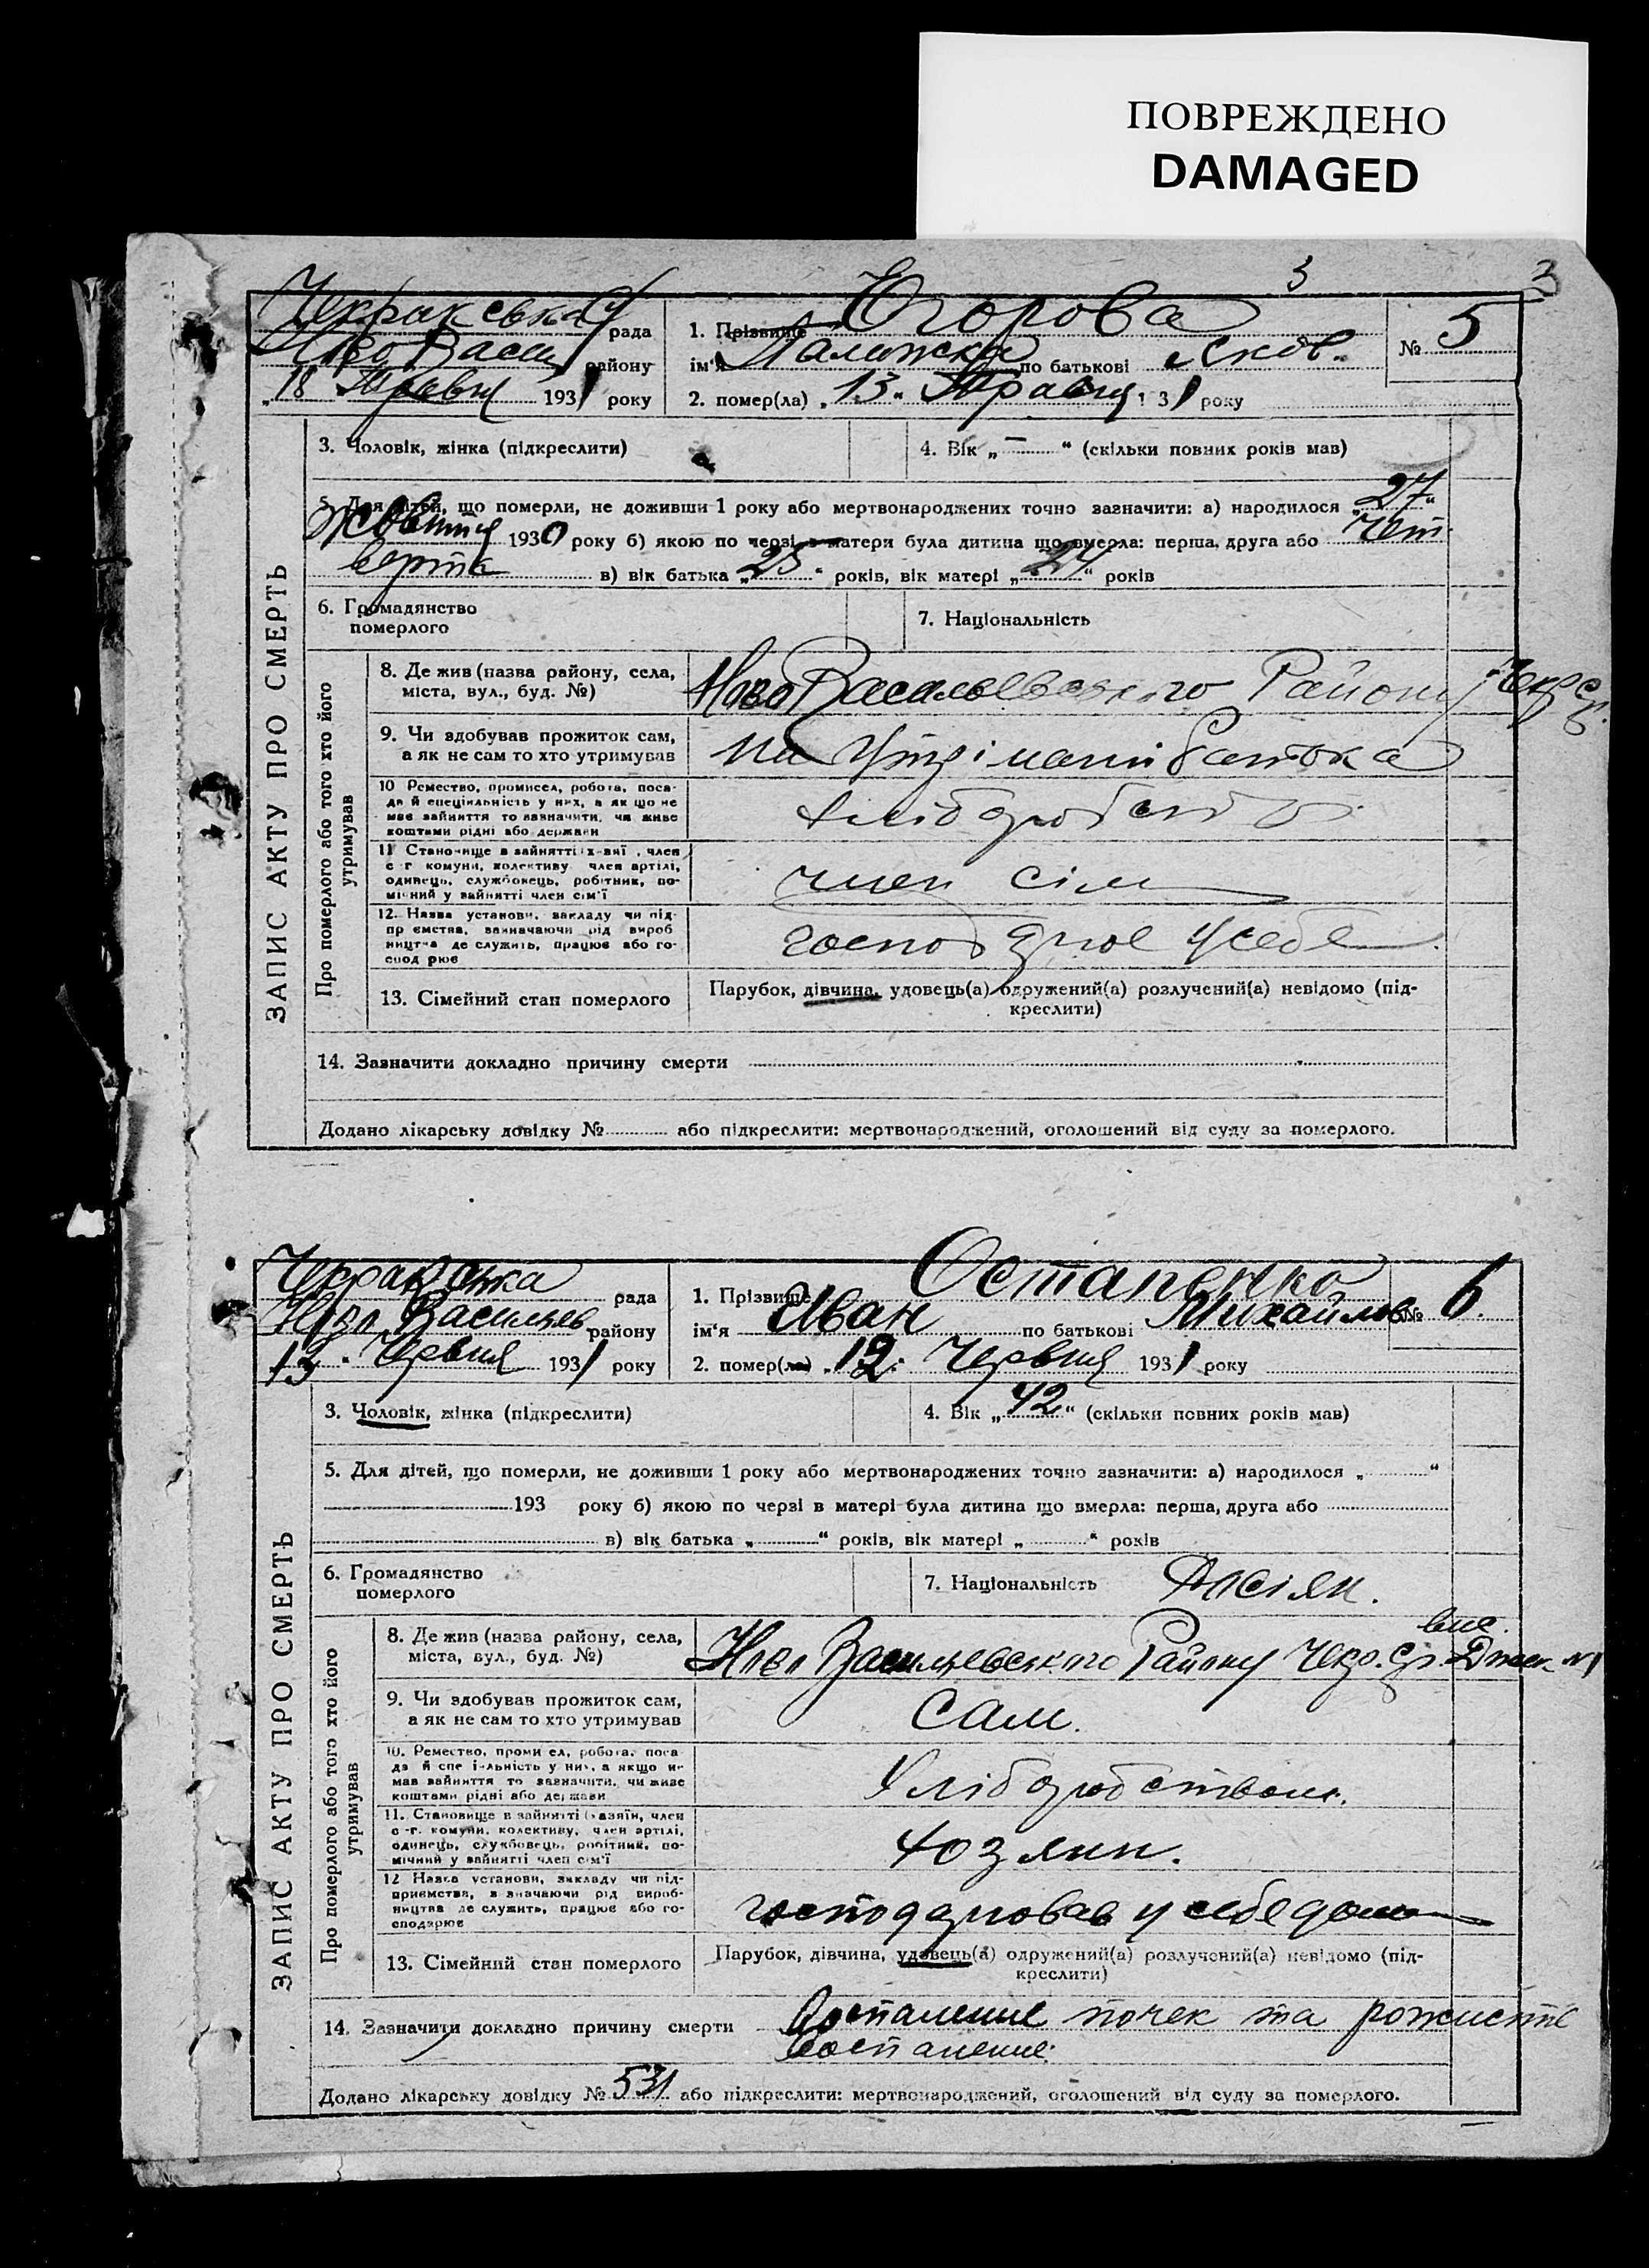 ПОВРЕЖДЕНО
DAMAGED
3
3
рада
Ново Васил району
"18" Травня 1931 року
1. Прізвище Єгорова
ім'я по батькові Яков.
2. помер(ла) "13" Травня 1931 року
№ 5
ЗАПИС АКТУ ПРО СМЕРТЬ
3. Чоловік, жінка (підкреслити)
4. Вік „ — “ (скільки повних років мав)
5. Для дітей, що померли, не доживши 1 року або мертвонароджених точно зазначити: а) народилося „27“
Жовтня 1930 року б) якою по черзі в матери була дитина що вмерла: перша, друга або чет
верта в) вік батька „25“ років, вік матері „24“ років
6. Громадянство
померлого
7. Національність
Про померлого або того хто його
утримував
8. Де жив (назва району, села,
міста, вул., буд. №)
Ново Васильевського Району
9. Чи здобував прожиток сам,
а як не сам то хто утримував
На утріманні батька
10 Ремество, промисел, робота, поса-
да й спеціяльність у них, а як що не
має зайняття то зазначити, чи живе
коштами рідні або держави
11 Становище в зайнятті , член
с-г комуни, колективу член артілі,
одинець, службовець, робітник, по-
мічний у зайнятті член сім'ї
член сім
12. Назва установи, закладу чи під-
приємства, зазначаючи рід вироб
ництва де служить, працює або го-
сподарює
господарює у себе
13. Сімейний стан померлого
Парубок, дівчина, удовець(а) одружений(а) розлучений(а) невідомо (під-
креслити)
14. Зазначити докладно причину смерти
Додано лікарську довідку № або підкреслити: мертвонароджений, оголошений від суду за померлого.
рада
Ново Васильев району
13 " Червня 1931 року
1. Прізвище Остапенко
ім'я Иван по батькові Михайлов
2. помер(ла) "12" Червня 1931 року
№ 6.
ЗАПИС АКТУ ПРО СМЕРТЬ
3. Чоловік, жінка (підкреслити)
4. Вік „42“ (скільки повних років мав)
5. Для дітей, що померли, не доживши 1 року або мертвонароджених точно зазначити: а) народилося „ “
193 року б) якою по черзі в матері була дитина що вмерла: перша, друга або
в) вік батька „ “ років, вік матері „ “ років
6. Громадянство
померлого
7. Національність
Про померлого або того хто його
утримував
8. Де жив (назва району, села,
міста, вул., буд. №)
Ново Васильевського Району Чекр.
9. Чи здобував прожиток сам,
а як не сам то хто утримував
Сам.
10. Ремество, промисел, робота, поса
да й спеціяльність у них, а якщо не
мав зайняття то зазначити, чи живе
коштами рідні або держави
Хліборобством.
11. Становище в зайнятті (хазяїн, член
с-г. комуни, колективу, член артілі,
одинець, службовець, робітник, по-
мічний у зайнятті член сім'ї
Хозяин.
12 Назва установи, закладу чи під-
приємства, зазначаючи рід вироб-
ництва де служить, працює або го-
сподарює
господарював у себе дома
13. Сімейний стан померлого
Парубок, дівчина, удовець(а) одружений(а) розлучений(а) невідомо (під-
креслити)
14. Зазначити докладно причину смерти Воспаление почек та
воспаление.
Додано лікарську довідку № 531 або підкреслити: мертвонароджений, оголошений від суду за померлого.